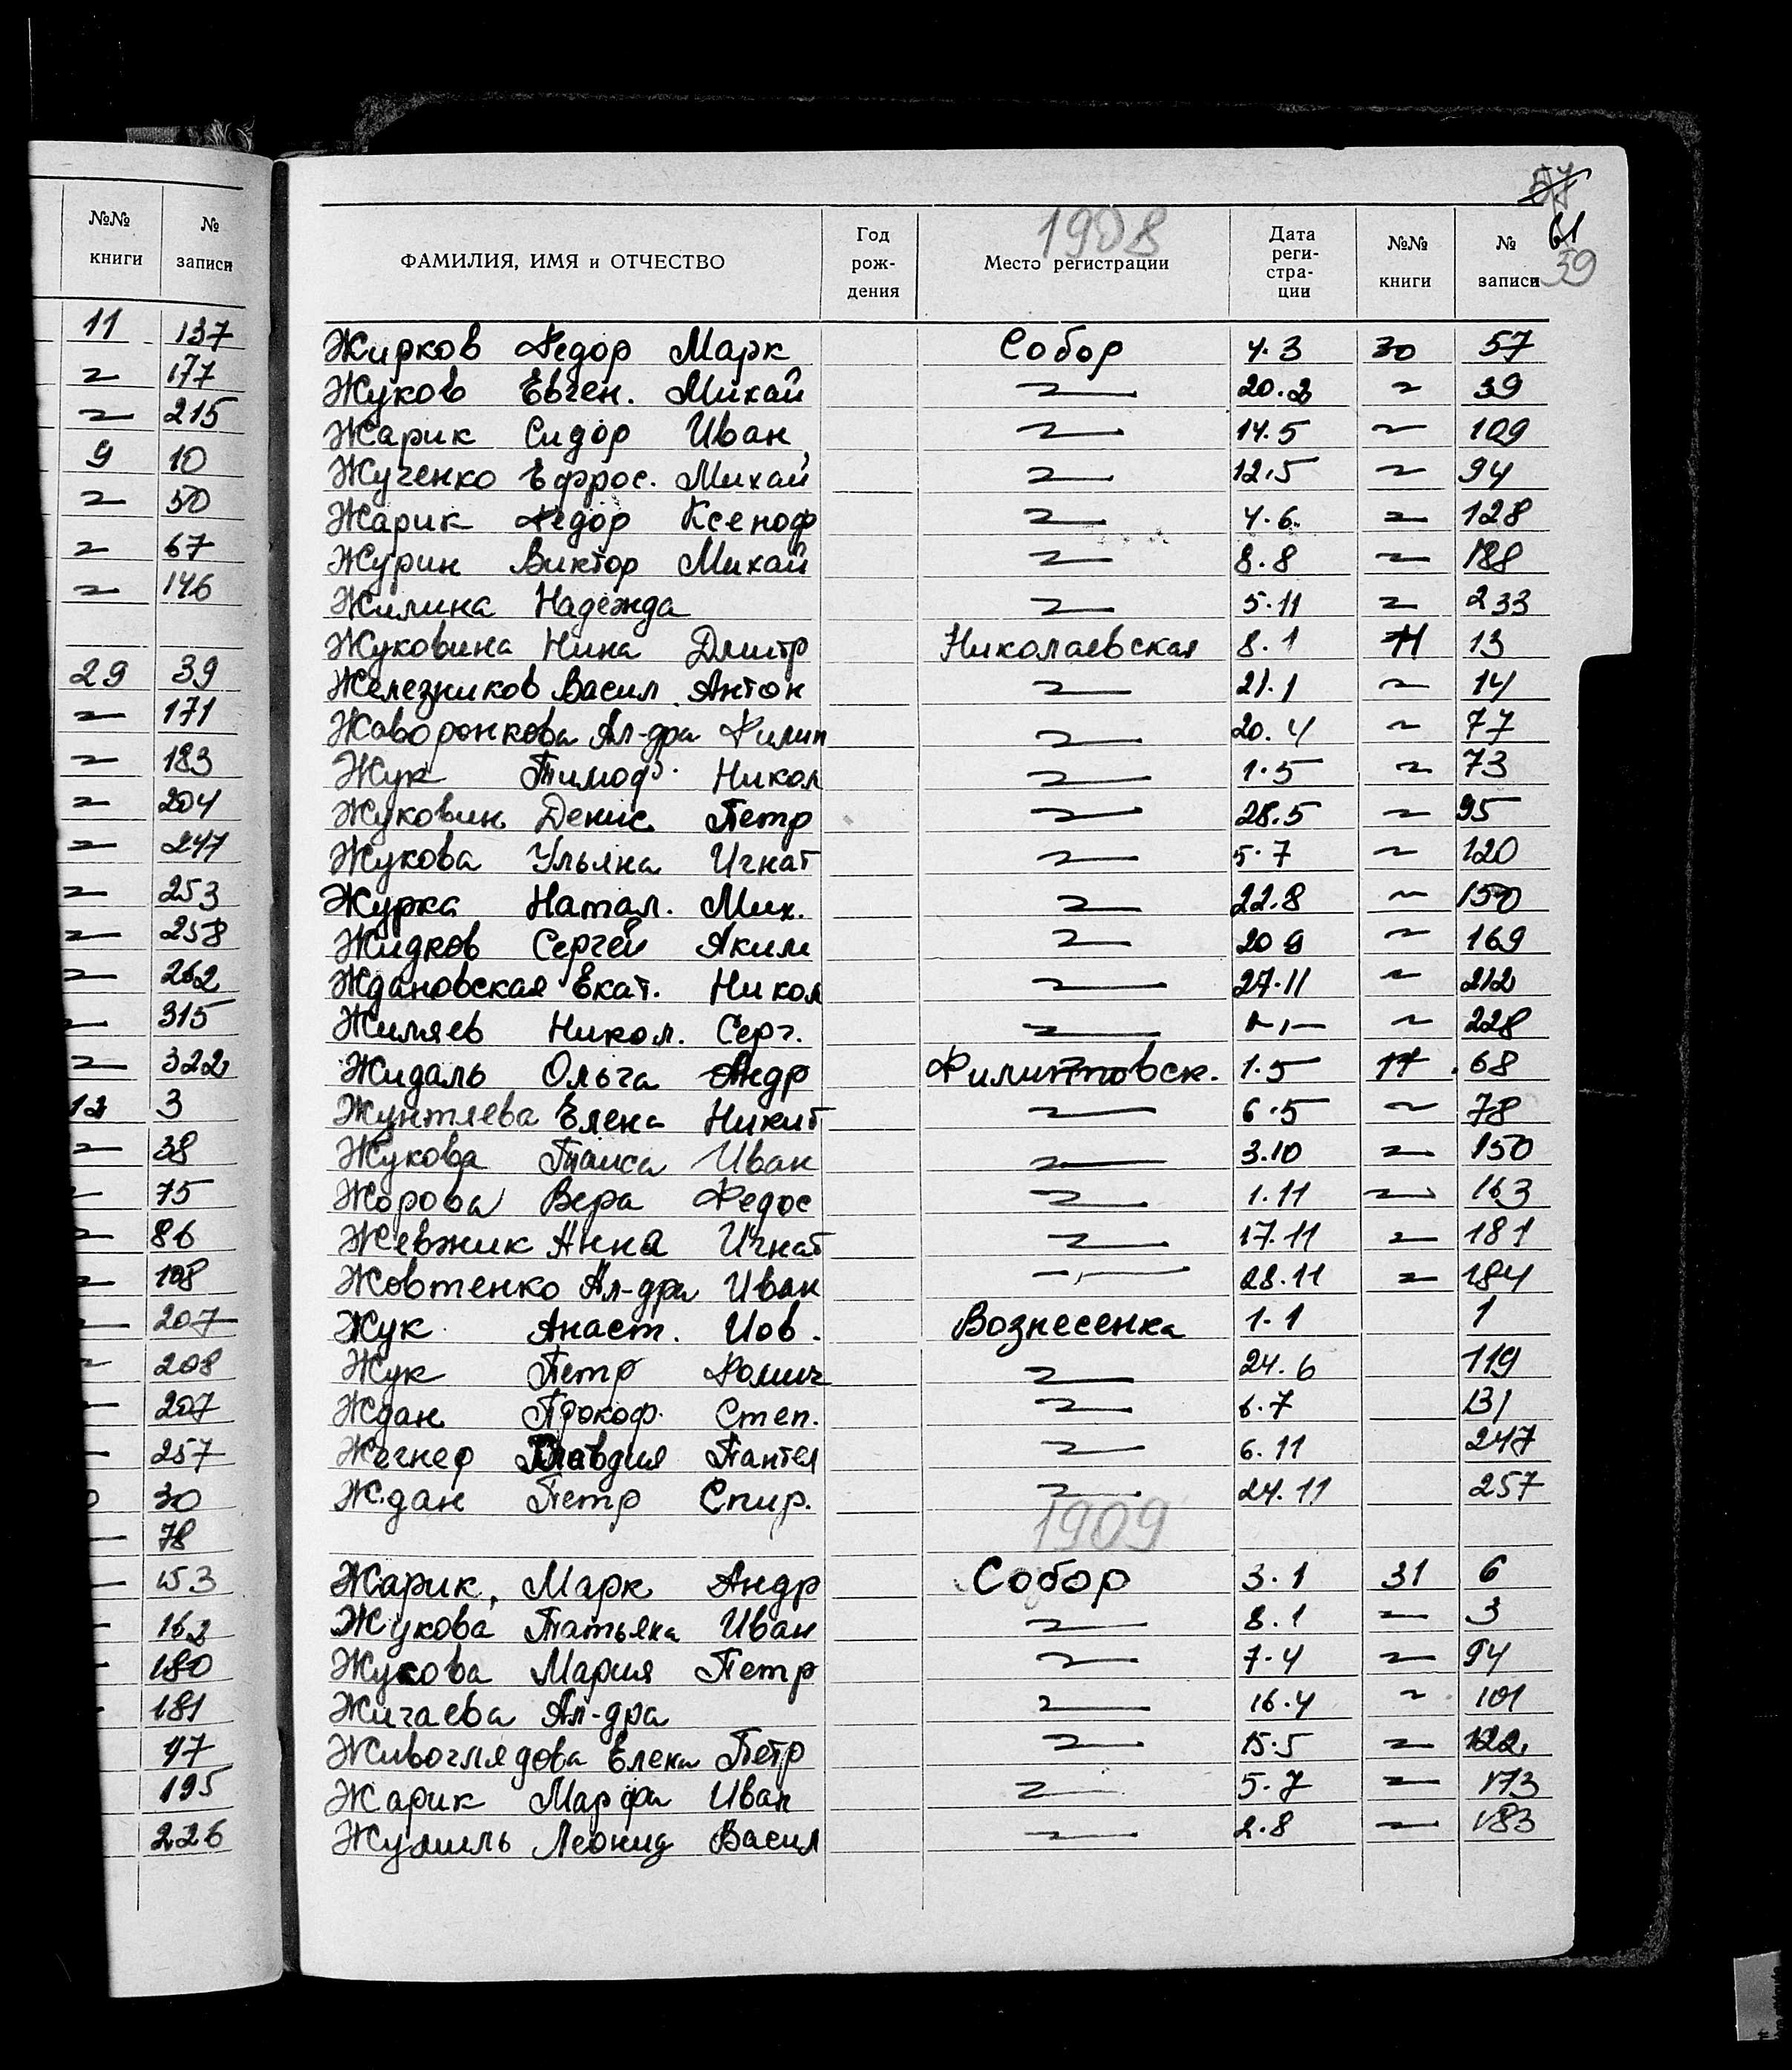 №№ книги № записи
11 137
~ 177
~ 215
9 10
~ 50
~ 67
~ 146
29 39
~ 171
~ 183
~ 204
~ 247
~ 253
~ 258
~ 262
~ 315
~ 322
12 3
~ 38
~ 75
~ 86
~ 108
~ 207
~ 208
~ 207
~ 257
30
78
153
162
180
181
47
195
226
57
61
59
1908
ФАМИЛИЯ, ИМЯ и ОТЧЕСТВО Год рож- дения Место регистрации Дата реги- стра- ции №№ книги № записи
Жирков Федор Марк Собор 4.3 30 57
Жуков Евген. Михай ~ 20.2 ~ 39
Жарик Сидор Иван ~ 14.5 ~ 109
Жученко Ефрос. Михай ~ 12.5 ~ 94
Жарик Федор Ксеноф ~ 4.6 ~ 128
Журин Виктор Михай ~ 8.8 ~ 188
Жилина Надежда ~ 5.11 ~ 233
Жуковина Нина Дмитр Николаевская 8.1 11 13
Железников Васил Антон ~ 21.1 ~ 14
Жаворонкова Ал-дра Филип ~ 20.4 ~ 77
Жук Тимоф. Никол ~ 1.5 ~ 73
Жуковин Денис Петр ~ 28.5 ~ 95
Жукова Ульяна Игнат ~ 5.7 ~ 120
Журка Натал. Мих. ~ 22.8 ~ 150
Жидков Сергей Аким ~ 20 9 ~ 169
Ждановская Екат. Никол ~ 27.11 ~ 212
Жиляев Никол. Серг. ~ ~ 228
Жидаль Ольга Андр Филипповск. 1.5 17 68
Жунтяева Елена Никит ~ 6.5 ~ 78
Жукова Таиса Иван ~ 3.10 ~ 150
Жорова Вера Федос ~ 1.11 ~ 163
Жевжик Анна Игнат ~ 17.11 ~ 181
Жовтенко Ал-дра Иван ~ 28.11 ~ 184
Жук Анаст. Иов. Вознесенка 1.1 1
Жук Петр ~ 24.6 119
Ждан Прокоф. Степ. ~ 6.7 131
Клавдия Пантел ~ 6.11 247
Ждан Петр Спир. ~ 24.11 257
1909
Жарик, Марк Андр Собор 3.1 31 6
Жукова Татьяна Иван ~ 8.1 ~ 3
Жукова Мария Петр ~ 7.4 ~ 94
Жигаева Ал-дра ~ 16.4 ~ 101
Живоглядова Елена Петр ~ 15.5 ~ 122
Жарик Марфа Иван ~ 5.7 ~ 173
Жумиль Леонид Васил ~ 2.8 ~ 183